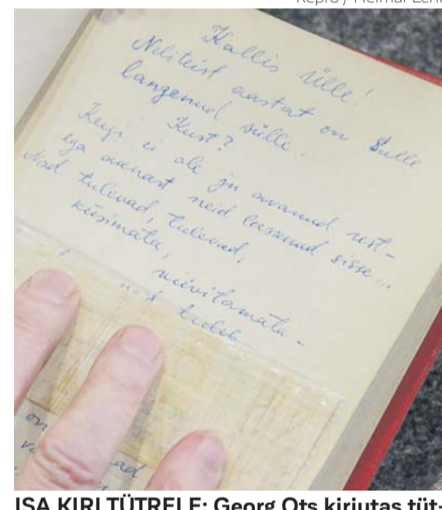 Repro /
Kallis Ülle!
Neliteist aastat on Sulle
langenud sülle.
Kust?
Keegi ei ole ju avanud ust-
ega aknast neid lasknud sisse...
Nad tulevad, tulevad,
küsimata,
viivitamata.
tuleb
on
ISA KIRI TÜTRELE: Georg Ots kirjutas tüt-